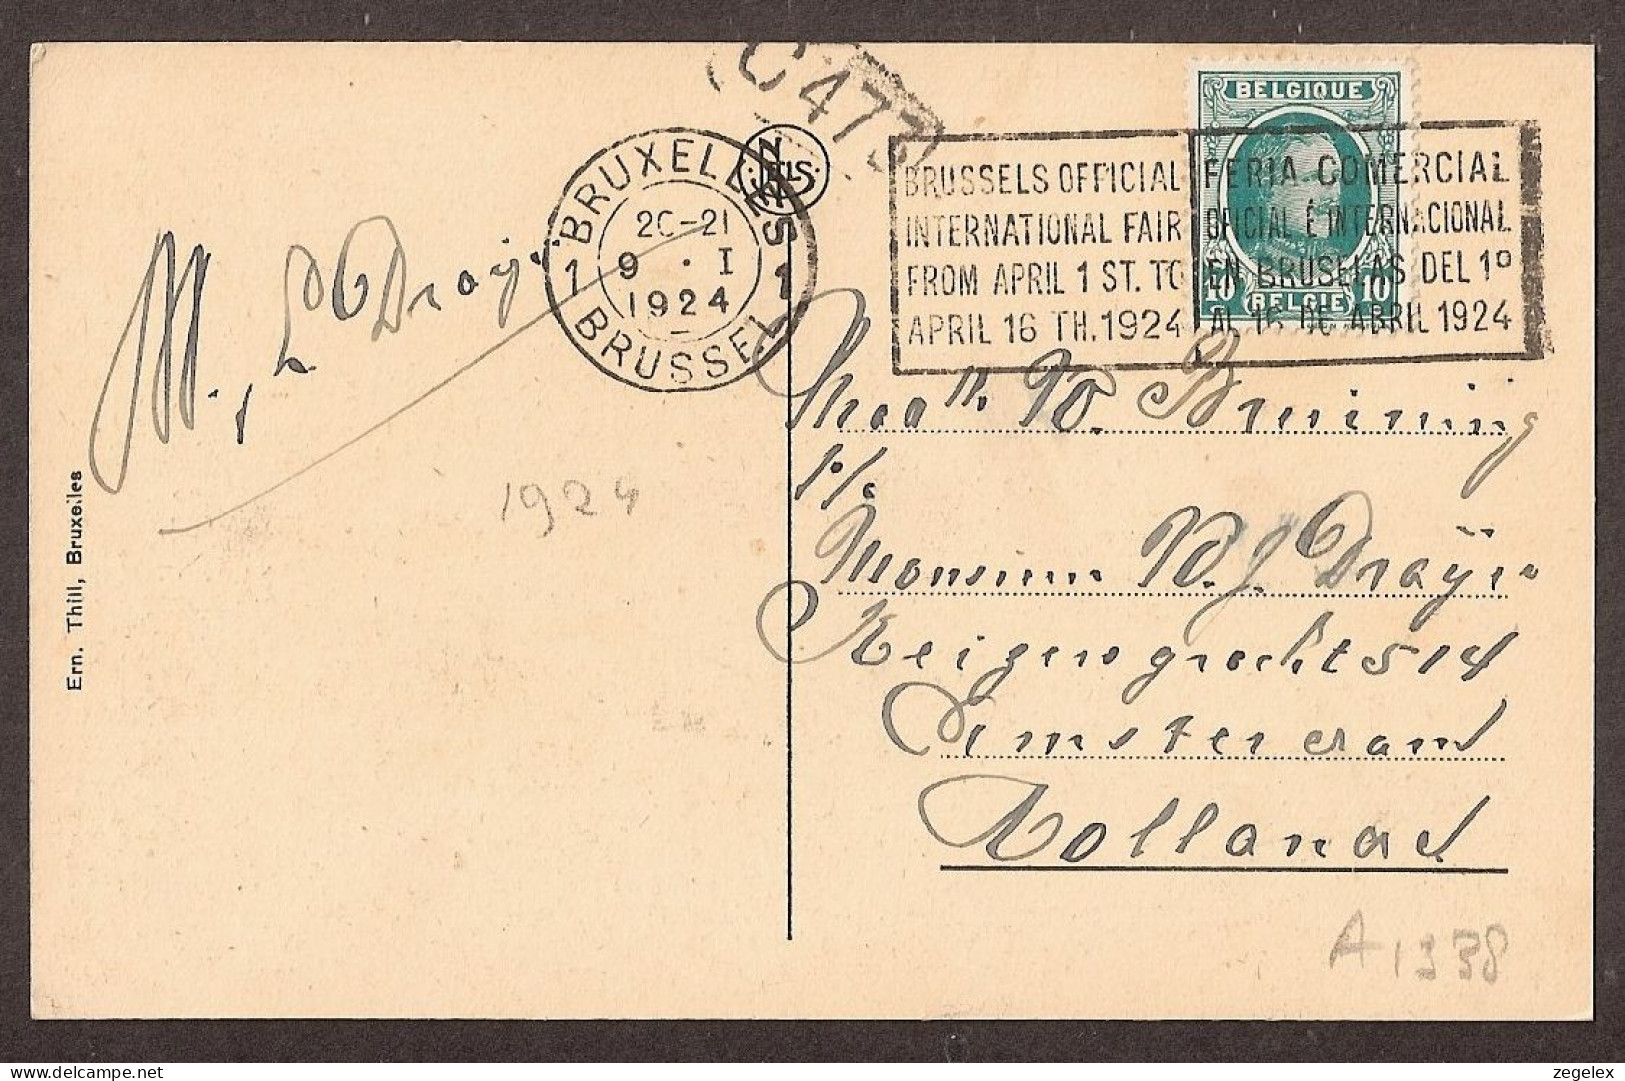 C473
BELGIQUE
BRUXELLES
20-21
9 · I
1924
1 1
BRUSSEL
NELS
BRUSSELS OFFICIAL
INTERNATIONAL FAIR
FROM APRIL 1 ST. TO
APRIL 16 TH. 1924
FERIA COMERCIAL
OFICIAL É INTERNACIONAL
EN BRUSELAS DEL 1º
AL 16 DE ABRIL 1924
10 BELGIE 10
1924
Bruining
Monsieur W. J. Draÿer
Keizersgracht 514
Amsterdam
Holland
A 1338
Ern. Thill, Bruxelles
zegelex